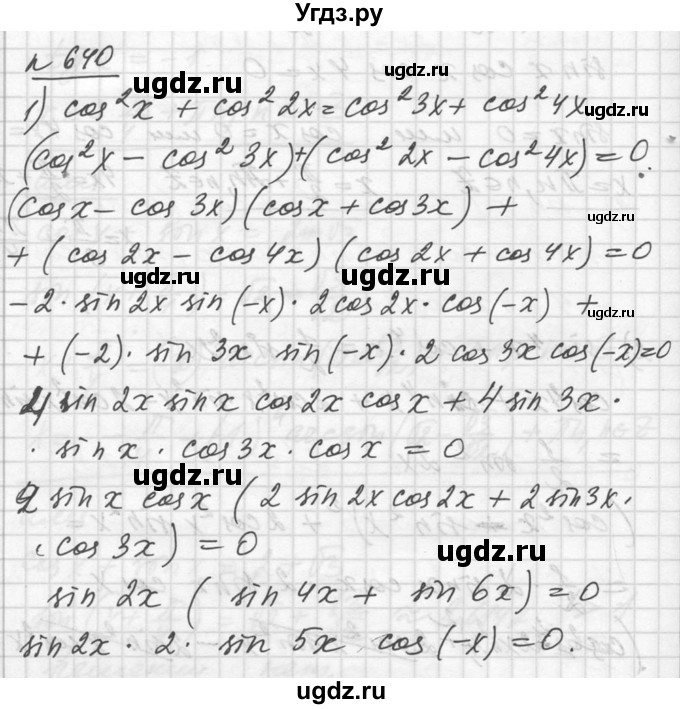 Угдз.ру
n 640
ugdz.ru ugdz.ru
1) cos²x + cos²2x = cos²3x + cos²4x
ugdz.ru
(cos²x – cos²3x) + (cos²2x – cos²4x) = 0.
(cosx – cos 3x) (cosx + cos3x) +
ugdz.ru
+ (cos 2x – cos 4x) (cos 2x + cos 4x) = 0
ugdz.ru ugdz.ru
-2 · sin 2x sin (-x) · 2 cos 2x · cos (-x) +
ugdz.ru
+ (-2) · sin 3x sin (-x) · 2 cos 3x cos (-x) = 0
ugdz.ru
4 sin 2x sin x cos 2x cos x + 4 sin 3x ·
ugdz.ru
· sin x · cos 3x · cos x = 0
ugdz.ru
2 sin x cos x (2 sin 2x cos 2x + 2 sin 3x ·
· cos 3x) = 0
ugdz.ru
sin 2x (sin 4x + sin 6x) = 0
sin 2x · 2 · sin 5x cos (-x) = 0.
ugdz.ru ugdz.ru
ugdz.ru